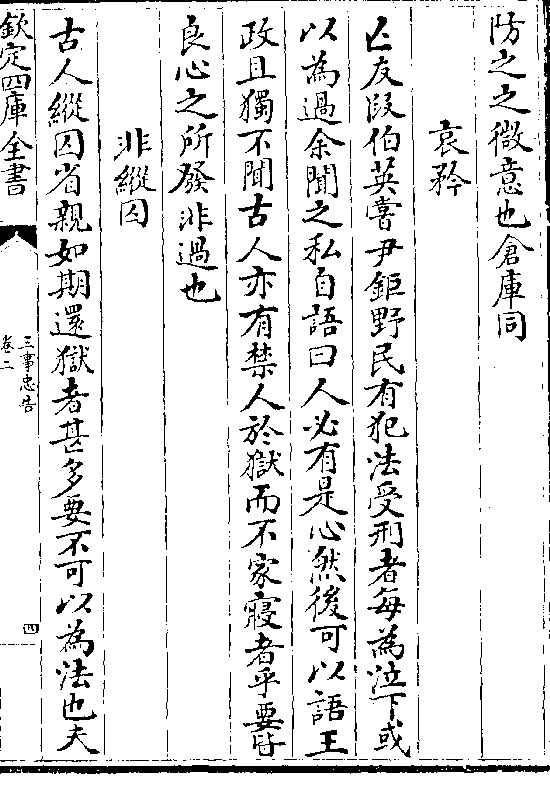 防之之微意也倉庫同
哀矜
亡友段伯英嘗尹鉅野民有犯法受刑者每為泣下或
以為過余聞之私自語曰人必有是心然後可以語王
政且獨不聞古人亦有禁人於獄而不家寢者乎要皆
良心之所發非過也
非縱囚
古人縱囚省親如期還獄者甚多要不可以為法也夫
欽定四庫全書
三事忠告
卷二
四